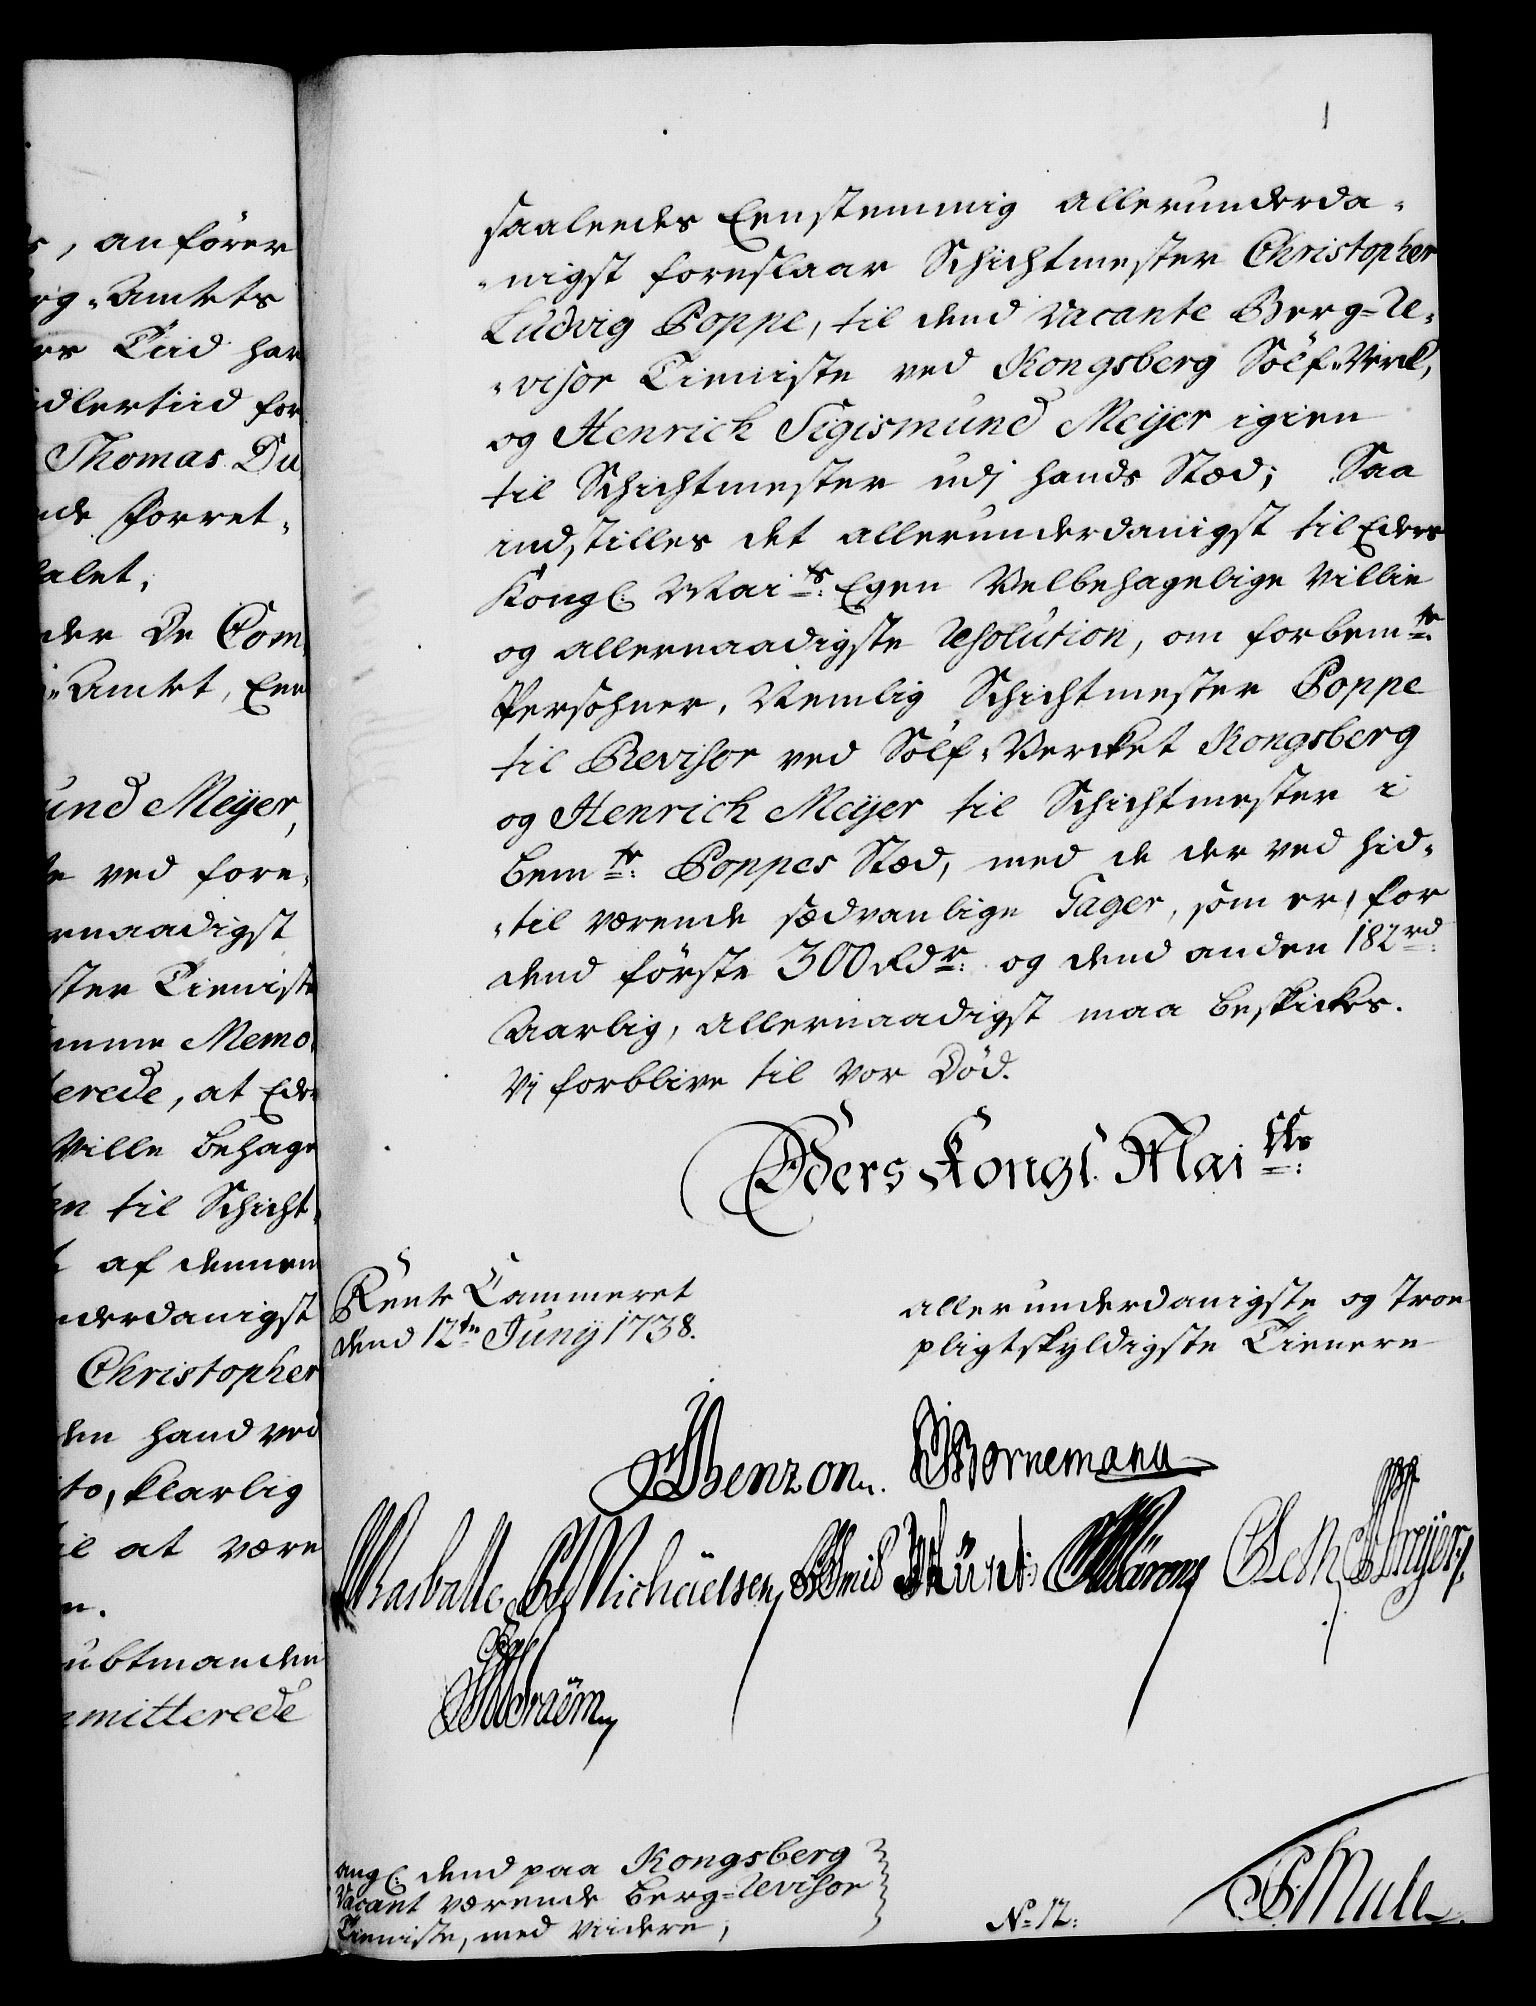 s, anfører
rg-Amtets
es Tiid har
idlertiid for
Thomas Du
nde forret-
alet,
der De Com
-Amtet, Een
und Meijer,
e ved fore-
ernaadigst
ster Tieniste
mme Memo
erede, at Eders
Ville behage
en til Schicht-
af dennem
nderdanigst
Christopher
den hand ved
to, klarlig
il at være
n.
ubtmanden
mitterede
1
saaledes Eenstemmig allerunderda-
-nigst foreslaar Schichtmester Christopher
Ludvig Poppe, til dend vacante Berg-Re-
-visor Tieniste ved Kongsberg Sølf-Verk,
og Henrich Sigismund Meijer igien
til Schichtmester udj hands Stæd; Saa
indstilles det allerunderdanigst til Eders
Kongl: Mai:ts Egen Velbehagelige Villie
og allernaadigste Resolution, om forbem:te
Persohner, Nemlig Schichtmester Poppe
til Revisor ved Sølf-Vercket Kongsberg
og Henrich Meijer til Schichtmester i
bem:te Poppes Stæd, med de der ved hid-
-til værende sædvanlige Gager, som er, for
dend første 300 Rdr: og dend anden 182 rd:
Aarlig, allernaadigst maa beskickes.
Vj forblive til vor Død.
Eders Kongl. Mai:ts
Rente Cammeret
dend 12ten Junij 1738.
allerunderdanigste og troe
pligtskyldigste Tienere
Benzon. Bornemann
Michaelsen
ang: dend paa Kongsberg
Vacant værende Berg-Revisor
Tieniste, med Viidere;
No 12:
Mule